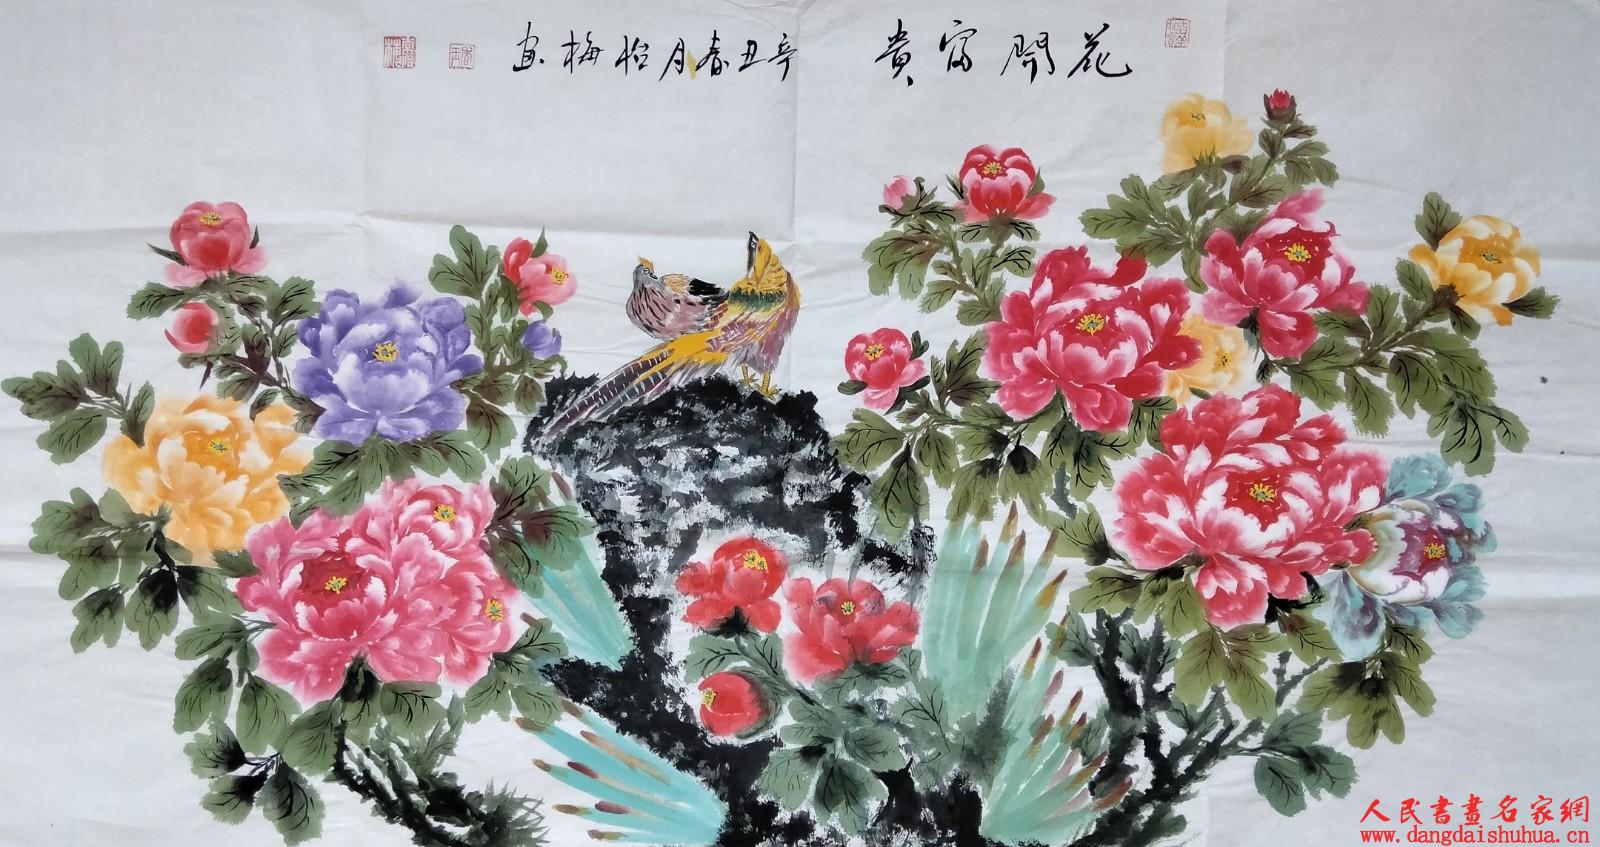 花開富貴
辛丑春月怡梅畫
人民書畫名家網
www.dangdaishuhua.cn